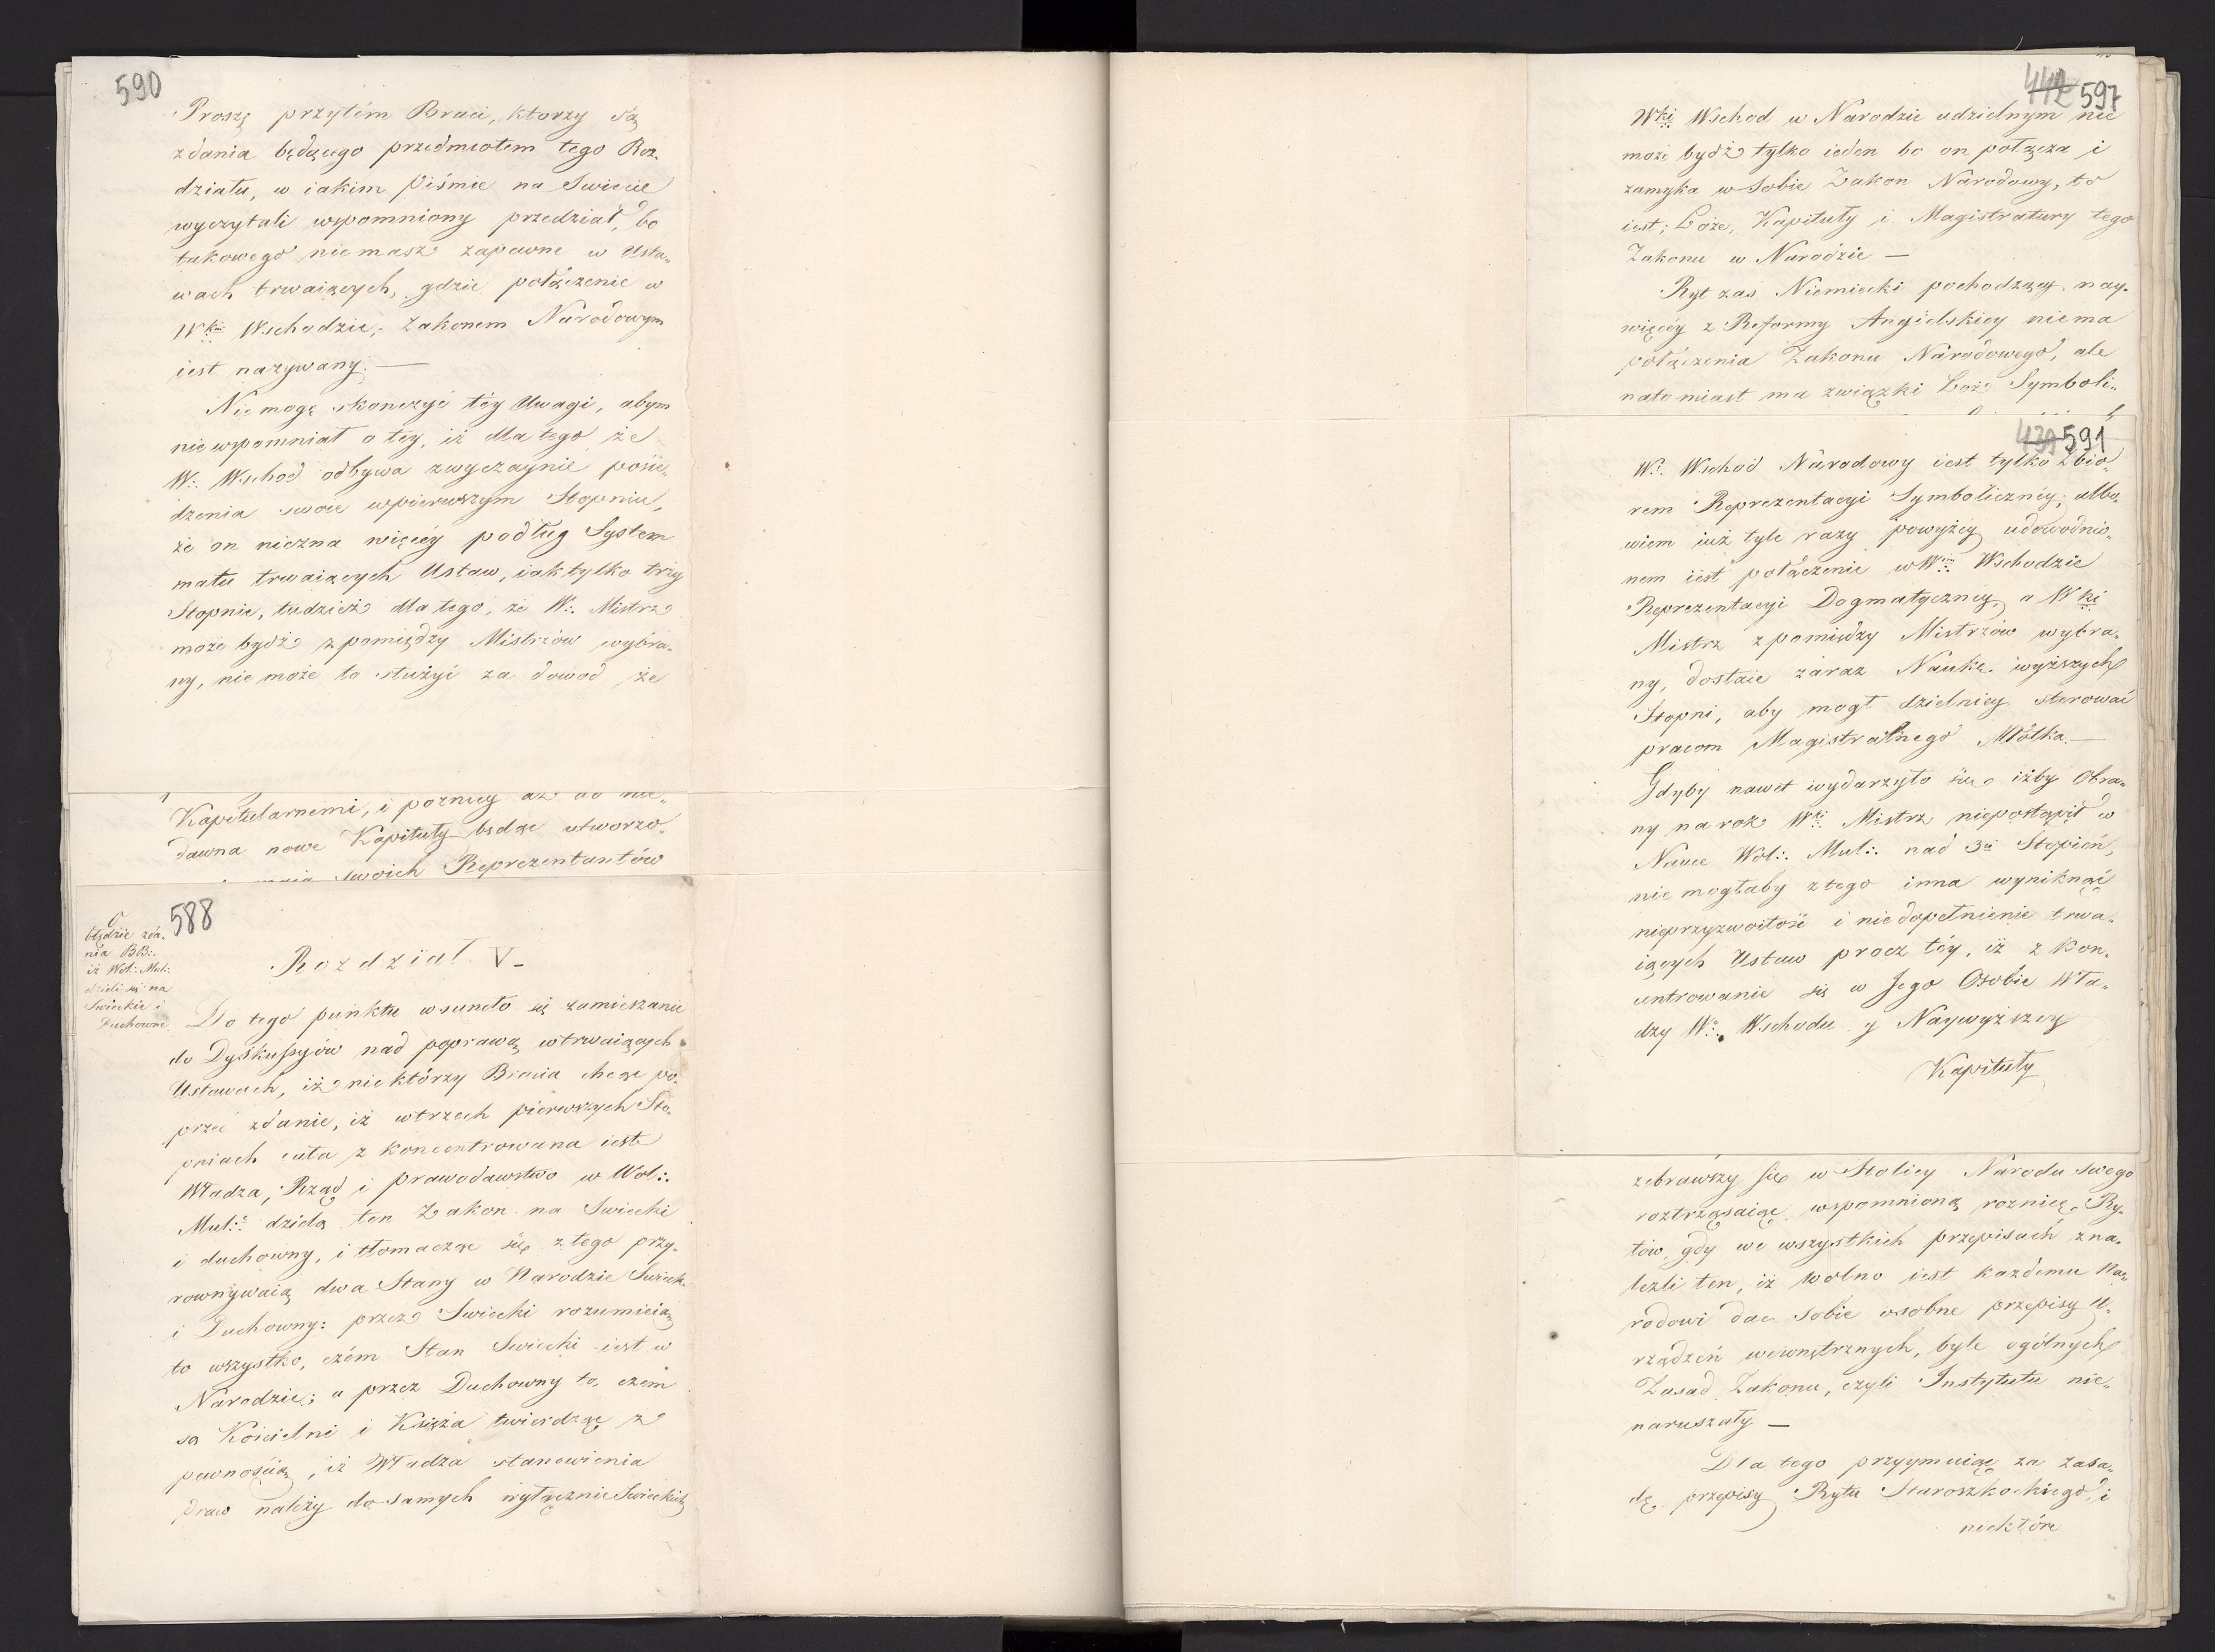 590
Proszę przytém Braci, ktorzy są
zdania będącego przedmiotem tego Roz-
działu, w iakim piśmie na Swiecie
wyczytali wspomniony przedział, bo
takowego niemasz zapewne w Usta-
wach trwaiących, gdzie połączenie w
Wkm Wschodzie, Zakonem Narodowym
iest nazywany. —
Nie mogę skonczyć téy Uwagi, abym
niewspomniał o tey, iż dla tego że
W∴ Wschod odbywa zwyczaynie posie-
dzenia swoie wpierwszym Stopniu,
że on niezna więcéy podług System
matu trwaiących Ustaw, iak tylko trzy
Stopnie, tudzież dla tego, że W∴ Mistrz
może bydź zpomiędzy Mistrzów wybra-
ny, nie może to służyć za dowod że
Kapitularnemi, i pozniey aż do nie-
dawna nowe Kapituły będąc utworzo-
swoich Reprezentantów
588
O
błędzie zda-
nia BB∴
iż Wol∴ Mul∴
dzieli się na
Swieckie i
Duchowne.
Rozdział V –
Do tego punktu wsuneło się zamieszanie
do Dyskussyów nad poprawą wtrwaiących
Ustawach, iż niektórzy Bracia chcąc po-
przeć zdanie, iż wtrzech pierwszych Sto-
pniach cała zkoncentrowana iest
Władza, Rząd i prawodawstwo w Wol∴
Mul∴ dzielą ten Zakon na Swiecki
i duchowny, i tłomacząc się z tego przy-
rownywaią dwa Stany w Narodzie Swiecki
i Duchowny: przez Swiecki rozumieią
to wszystko, czém Stan Swiecki iest w
Narodzie; a przez Duchowny to, czem
są Kościelni i Księża twierdząc z
pewnością, iż Władza stanowienia
praw należy do samych wyłącznie Swieckich
442 597
Wki Wschod w Narodzie udzielnym nie
może bydź tylko ieden bo on połącza i
zamyka w Sobie Zakon Narodowy, to
iest; Loże, Kapituły i Magistratury tego
Zakonu w Narodzie —
Ryt zas Niemiecki pochodzący nay-
więcéy z Reformy Angielskiey niema
połączenia Zakonu Narodowego, ale
natomiast ma związki Loż Symboli-
439 591
W∴ Wschod Narodowy iest tylko zbio-
rem Reprezentacyi Symbolicznéy; albo-
wiem iuż tyle razy powyżey udowodnio-
nem iest połączenie wWm Wschodzie
Reprezentacyi Dogmatyczney, a Wki
Mistrz zpomiędzy Mistrzów wybra-
ny, dostaie zaraz Naukę wyższych
Stopni, aby mogł dzielniey sterować
pracom Magistralnego Młotka. —
Gdyby nawet wydarzyło się iżby Obra-
ny na rok Wki Mistrz niepostąpił w
Nauce Wol∴ Mul∴ nad 3ci Stopień,
nie mogłaby ztego inna wyniknąć
nieprzyzwoitość i niedopełnienie trwa-
iących Ustaw procz téy, iż zkon-
centrowanie się w Jego Osobie Wła-
dzy Wo Wschodu y Naywyższey
Kapituły
zebrawszy się w Stolicy Narodu swego
roztrząsaiąc wspomnioną roznicę Ry-
tów, gdy we wszystkich przepisach zna-
lezli ten, iż wolno iest każdemu Na-
rodowi dać sobie osobne przepisy U-
rządzeń wewnętrznych, byle ogólnych
Zasad Zakonu, czyli Instytutu nie-
naruszały —
Dla tego przyymuiąc za zasa-
dę przepisy Rytu Staroszkockiego, i
niektóre